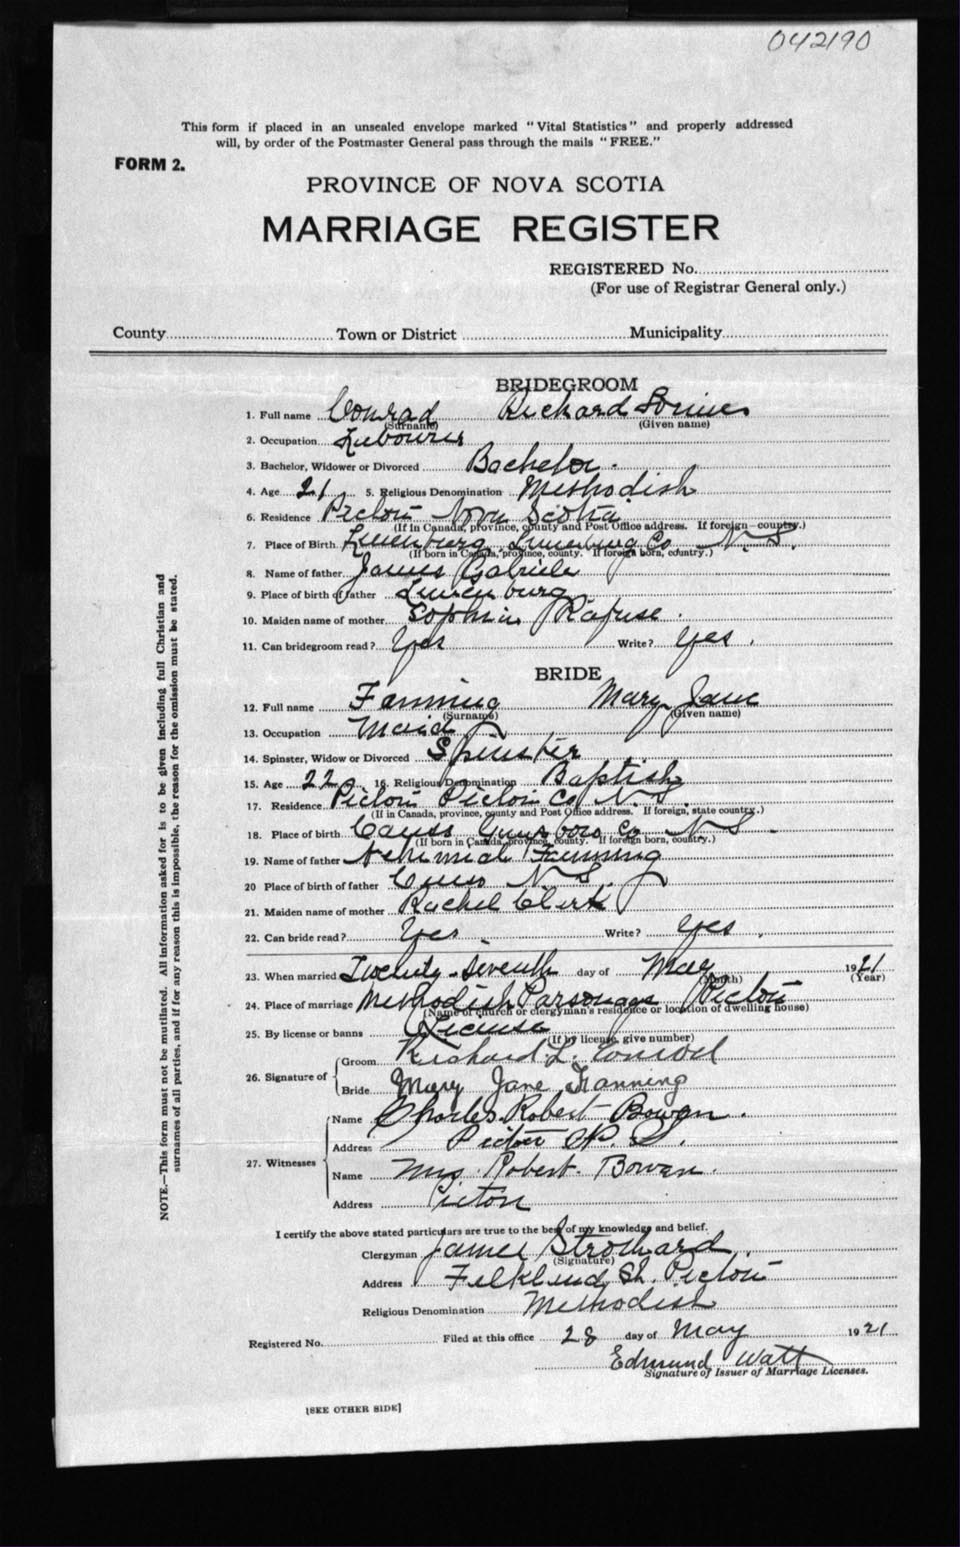 042190
This form if placed in an unsealed envelope marked "Vital Statistics" and properly addressed
will, by order of the Postmaster General pass through the mails "FREE."
FORM 2.
PROVINCE OF NOVA SCOTIA
MARRIAGE REGISTER
REGISTERED No.
(For use of Registrar General only.)
County Town or District Municipality
BRIDEGROOM
1. Full name Conrad Richard
(Surname) (Given name)
2. Occupation
3. Bachelor, Widower or Divorced Bachelor.
4. Age 21 5. Religious Denomination Methodish
6. Residence Pictou Nova Scotia
(If in Canada, province, county and Post Office address. If foreign country.)
7. Place of Birth Lunenburg Lunenburg Co N.S.
(If born in Canada, province, county. If foreign born, country.)
8. Name of father James Gabriele
9. Place of birth of father Lunenburg
10. Maiden name of mother Sophia Rafuse.
11. Can bridegroom read? Yes Write? Yes.
BRIDE
12. Full name Fanning Mary Jane
(Surname) (Given name)
13. Occupation Maid
14. Spinster, Widow or Divorced Spinster
15. Age 22 16. Religious Denomination Baptish
17. Residence Pictou Pictou Co N.S.
(If in Canada, province, county and Post Office address. If foreign, state country.)
18. Place of birth Co N S.
(If born in Canada, province, county. If foreign born, country.)
19. Name of father Fanning
20 Place of birth of father N S.
21. Maiden name of mother Rachel Clark
22. Can bride read? Yes. Write? Yes.
23. When married Twenty-seventh day of May 1921
(Month) (Year)
24. Place of marriage Methodish Parsonage Pictou
(Name of church or clergyman's residence or location of dwelling house)
25. By license or banns License
(If by license, give number)
26. Signature of
Groom Richard L. Conrod
Bride Mary Jane Fanning
27. Witnesses
Name Charles Robert Bowen.
Address Pictou N. S.
Name Mrs Robert Bowen.
Address Picton
I certify the above stated particulars are true to the best of my knowledge and belief.
Clergyman James Strothard.
(Signature)
Address St. Pictou
Religious Denomination Methodish
Registered No. Filed at this office 28 day of May 1921
Edmund Watt
Signature of Issuer of Marriage Licenses.
[SEE OTHER SIDE]
NOTE.—This form must not be mutilated. All information asked for is to be given including full Christian and
surnames of all parties, and if for any reason this is impossible, the reason for the omission must be stated.